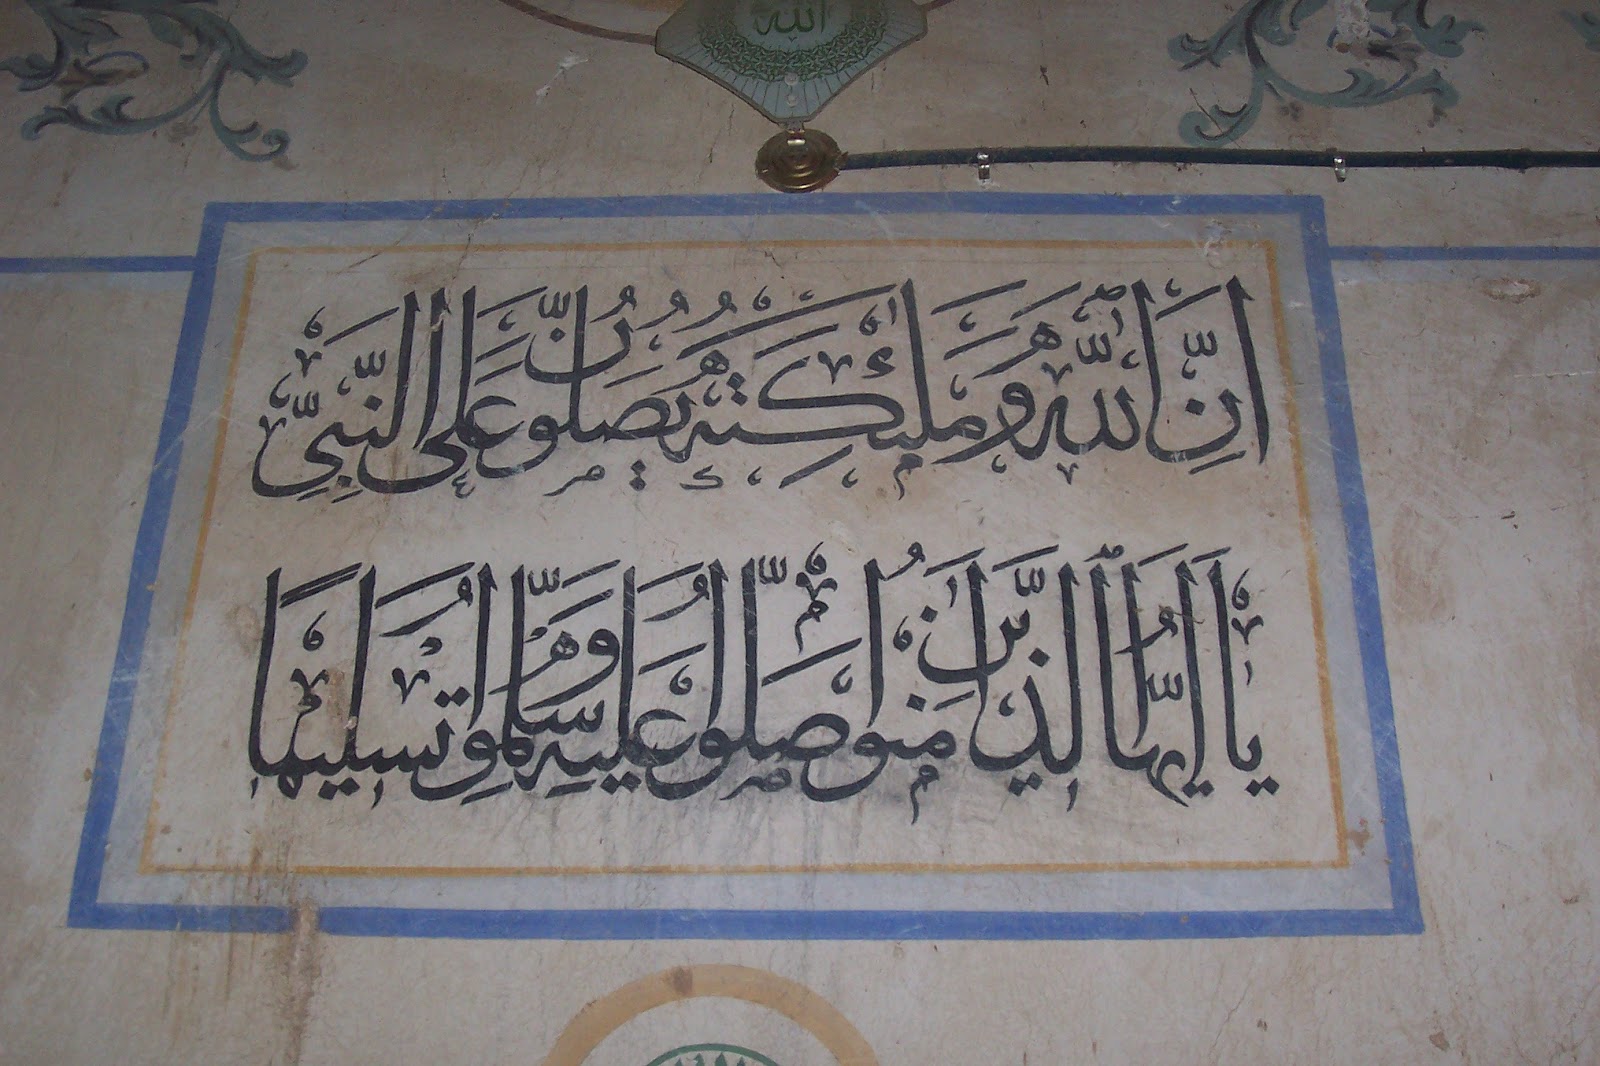 الله
اِنَّ اللّٰهَ وَمَلٰئِكَتَهُ يُصَلُّونَ عَلَى النَّبِيِّ
يَا اَيُّهَا الَّذِينَ اٰمَنُوا صَلُّوا عَلَيْهِ وَسَلِّمُوا تَسْلِيمًا